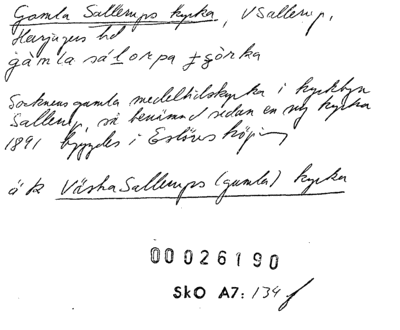 Gamla Sallerups kyrka, V Sallerup,
Harjagers hd
gàmla sálorpa çòrka
Socknens gamla medeltidskyrka i kyrkbyn
Sallerup, så benämnd sedan en ny kyrka
1891 byggdes i Eslövs köping
äk Västra Sallerups (gamla) kyrka
00026190
SkO A7: 134